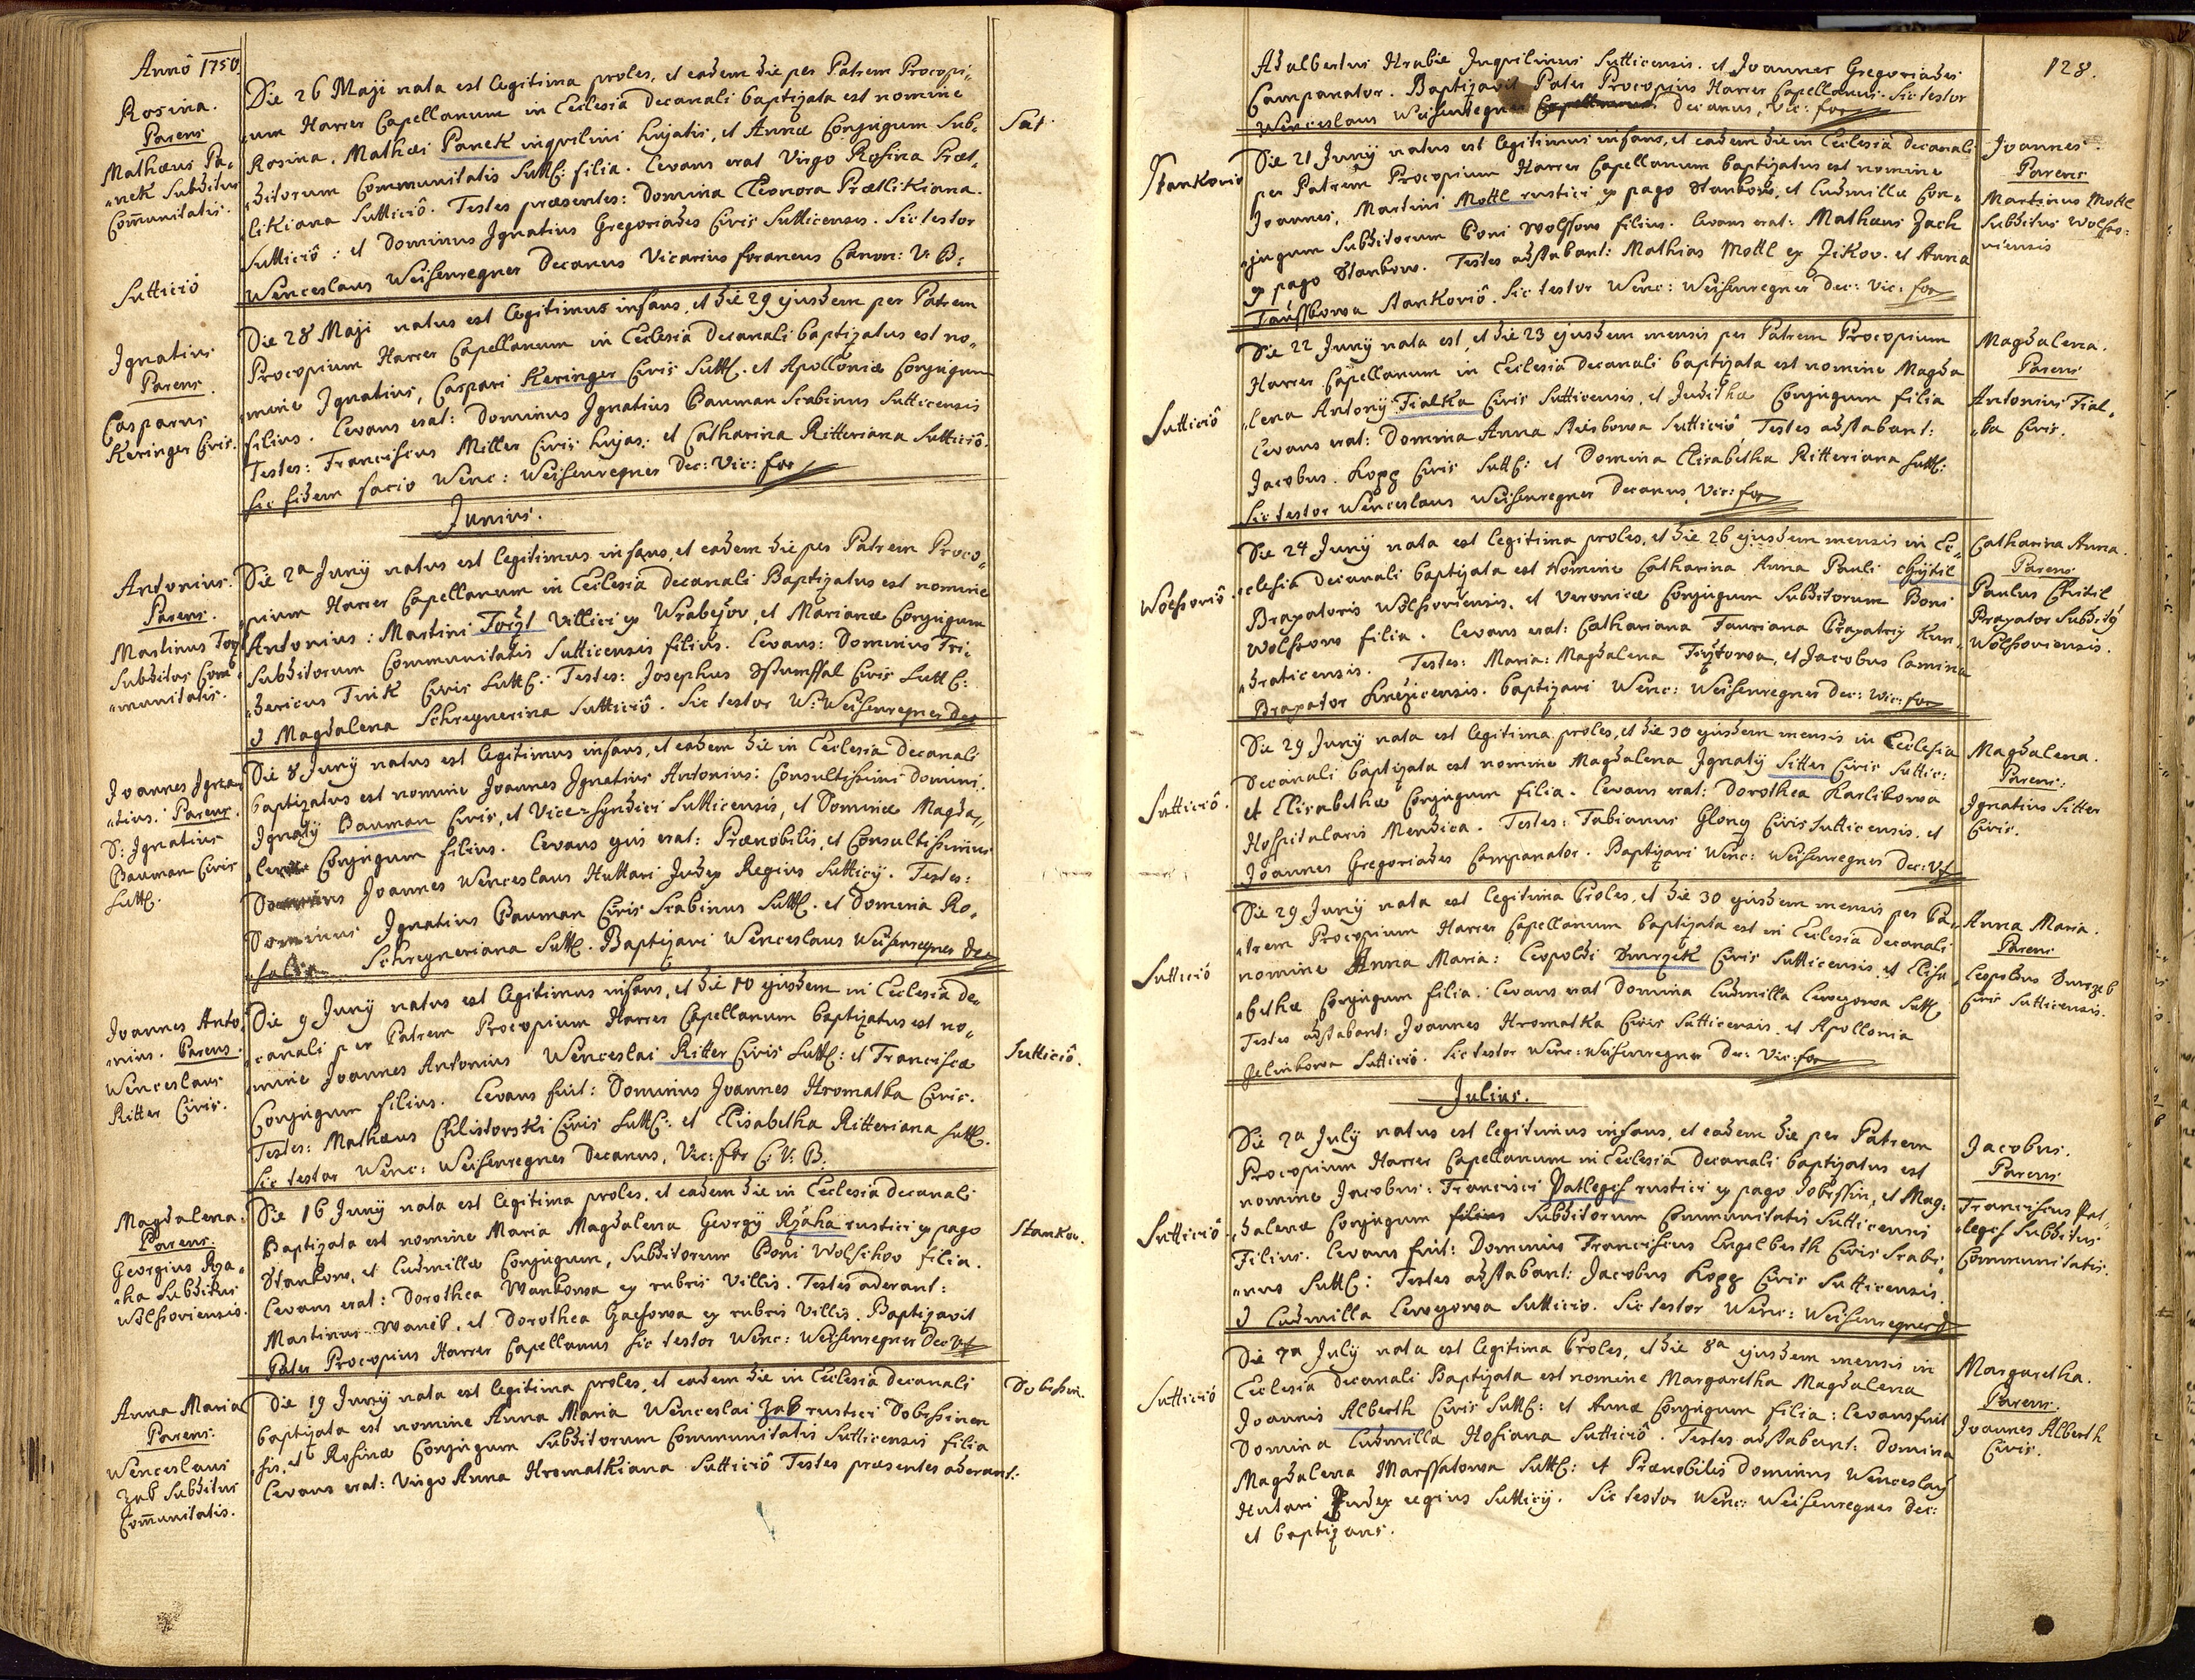 Anno 1750.
Rosina.
Parens
Mathaeus Pa-
nek Subditus
Communitatis.
Suttició
Die 26 Maji nata est legitima proles, et eadem die per Patrem Procopi-
um Harrer Capellanum in Ecclesia decanali baptizata est nomine
Rosina. Mathaei Panek inqvilini hujatis, et Annae Conjugum Sub-
ditorum Communitatis Sutt: filia. Levans erat Virgo Rosina Praet-
likiana Suttició. Testes praesentes: Domina Eleonora Praetlikiana
Suttició: et Dominus Ignatius Gregoriades Civis Sutticensis. Sic testor
Wenceslaus Weisenregner Decanus Vicarius foraneus Canon: V: B:
Sut.
Ignatius
Parens.
Casparus
Keringer Civis.
Die 28 Maji natus est legitimus infans, et die 29 ejusdem per Patrem
Procopium Harrer Capellanum in Ecclesia decanali baptizatus est no-
mine Ignatius, Caspari Keringer Civis Sutt. et Apolloniae Conjugum
filius. Levans erat: Dominus Ignatius Bauman Scabinus Sutticensis
Testes: Franciscus Miller Civis hujas: et Catharina Ritteriana Suttició.
Sic fidem facio Wenc: Weisenregner Dec: Vic: for
Junius.
Antonius.
Parens.
Martinus
Subditus Com-
munitatis.
Die 2a Junÿ natus est legitimus infans, et eadem die per Patrem Proco-
pium Harrer Capellanum in Ecclesia decanali Baptizatus est nomine
Antonius: Martini Toryl Villici ex Wrabczov, et Marianae Conjugum
Subditorum Communitatis Sutticensis filius. Levans: Dominus Fri-
dericus Turik Civis Sutt: Testes: Josephus Civis Sutt:
& Magdalena Schregnerina Suttició. Sic testor W: Weisenregner Dec
Joannes Igna-
tius. Parens.
D: Ignatius
Bauman Civis
Sutt.
Die 8 Junÿ natus est legitimus infans, et eadem die in Ecclesia decanali
baptizatus est nomine Joannes Ignatius Antonius: Consultissimi Domini
Ignatÿ Bauman Civis, et Vice-Syndici Sutticensis, et Dominae Magda-
lenae Conjugum filius. Levans ejus erat: Praenobilis, et Consultissimus
Dominus Joannes Wenceslaus Huttari Judex Regius Sutticÿ. Testes:
Dominus Ignatius Bauman Civis Scabinus Sutt. et Domina Ro-
salia Schregneriana Sutt. Baptizavi Wenceslaus Weisenregner Dec
Joannes Anto-
nius. Parens.
Wenceslaus
Ritter Civis.
Die 9 Junÿ natus est legitimus infans, et die 10 ejusdem in Ecclesia de-
canali per Patrem Procopium Harrer Capellanum baptizatus est no-
mine Joannes Antonius Wenceslai Ritter Civis Sutt: et Franciscae
Conjugum filius. Levans fuit: Dominus Joannes Hromatka Civis.
Testes: Mathaeus Chlistovski Civis Sutt: et Elisabetha Ritteriana Sutt.
Sic testor Wenc: Weisenregner Decanus, Vic: for C: V: B:
Suttició.
Magdalena.
Parens:
Georgius Rza-
ha Subditus
Wolssoviensis.
Die 16 Junÿ nata est legitima proles, et eadem die in Ecclesia decanali
Baptizata est nomine Maria Magdalena Georgÿ Rzaha rustici ex pago
Stankow, et Ludmillae Conjugum, Subditorum Boni Wolschov filia.
Levans erat: Dorothea Wankowa ex rubris Villis. Testes aderant:
Martinus Wanek, et Dorothea ex rubris Villis. Baptizavit
Pater Procopius Harrer Capellanus sic testor Wenc: Weisenregner Dec Vf
Stankov.
Anna Maria
Parens:
Wenceslaus
Zab Subditus
Communitatis.
Die 19 Junÿ nata est legitima proles, et eadem die in Ecclesia decanali
baptizata est nomine Anna Maria Wenceslai Zab rustici Dobessinen
sis, et Rosinae Conjugum Subditorum Communitatis Sutticensis filia
Levans erat: Virgo Anna Hromatkiana Suttició Testes praesentes aderant:
Dobessin.
128.
Adalbertus Hrabie Inqvilinus Sutticensis. et Joannes Gregoriades
Campanator. Baptizavit Pater Procopius Harrer Capellanus. Sic testor
Wenceslaus Weisenregner Decanus, Vic: for
Stankovió
Die 21 Junÿ natus est legitimus infans, et eadem die in Ecclesia decanali
per Patrem Procopium Harrer Capellanum baptizatus est nomine
Joannes, Martini Mottl rustici ex pago Stankow, et Ludmillae Con-
jugum Subditorum Boni Wolssow filius. Levans erat: Mathaeus Zach
ex pago Stankow. Testes adstabant: Mathias Mottl ex Zikov. et Anna
Tausskowa Stankovió. Sic testor Wenc: Weisenregner Dec: Vic: for
Joannes.
Parens
Martinus Mottl
Subditus Wolsso-
viensis
Suttició
Die 22 Junÿ nata est, et die 23 ejusdem mensis per Patrem Procopium
Harrer Capellanum in Ecclesia decanali baptizata est nomine Magda
lena Antonÿ Fialka Civis Sutticensis, et Judithae Conjugum filia
Levans erat: Domina Anna Suttició, Testes adstabant:
Jacobus Kopp Civis Sutt: et Domina Elisabetha Ritteriana Sutt:
Sic testor Wenceslaus Weisenregner Decanus, Vic: for
Magdalena.
Parens
Antonius Fial-
ka Civis.
Wolssovió.
Die 24 Junÿ nata est legitima proles, et die 26 ejusdem mensis in Ec-
clesia decanali baptizata est Nomine Catharina Anna Pauli Chÿtil
Braxatoris Wolssoviensis, et Veronicae Conjugum Subditorum Boni
Wolssow filia. Levans erat: Cathariana Fauriana Braxatrix Kun-
draticensis. Testes: Maria: Magdalena et Jacobus Lamina
Braxator Knezicensis. baptizavi Wenc: Weisenregner Dec: Vic: for
Catharina Anna.
Parens
Paulus Chitil
Braxator Subditÿ
Wolssoviensis.
Suttició.
Die 29 Junÿ nata est legitima proles, et die 30 ejusdem mensis in Ecclesia
Decanali baptizata est nomine Magdalena Ignatÿ Sitter Civis Suttic:
et Elisabethae Conjugum filia. Levans erat: Dorothea Karlikowa
Hospitalaris Mendica. Testes: Fabianus Glony Civis Sutticensis, et
Joannes Gregoriades Campanator. Baptizavi Wenc: Weisenregner Dec: Vf
Magdalena.
Parens:
Ignatius Sitter
Civis.
Suttició
Die 29 Junÿ nata est legitima Proles, et die 30 ejusdem mensis per Pa-
trem Procopium Harrer Capellanum baptizata est in Ecclesia decanali
nomine Anna Maria: Leopoldi Smrzek Civis Sutticensis et Elisa-
bethae Conjugum filia. Levans erat Domina Ludmilla Sutt
Testes adstabant: Joannes Hromatka Civis Sutticensis, et Apollonia
Jelinkowa Suttició. Sic testor Wenc: Weisenregner Dec: Vic: for
Anna Maria.
Parens
Leopoldus Smrzek
Civis Sutticensis.
Julius.
Suttició
Die 2a Julÿ natus est legitimus infans, et eadem die per Patrem
Procopium Harrer Capellanum in Ecclesia decanali baptizatus est
nomine Jacobus: Francisci rustici ex pago Dobessin, et Mag-
dalenae Conjugum filius Subditorum Communitatis Sutticensis
Filius. Levans fuit: Dominus Franciscus Engelberth Civis Scabi-
nus Sutt: Testes adstabant: Jacobus Kopp Civis Sutticensis.
& Ludmilla Suttició. Sic testor Wenc: Weisenregner D
Jacobus.
Parens
Franciscus
Subditus
Communitatis.
Suttició
Die 7a Julÿ nata est legitima Proles, et die 8a ejusdem mensis in
Ecclesia decanali Baptizata est nomine Margaretha Magdalena
Joannis Alberth Civis Sutt: et Annae Conjugum filia: Levans fuit
Domina Ludmilla Hosiana Suttició. Testes adstabant: Domina
Magdalena Marssalowa Sutt: et Praenobilis Dominus Wenceslaÿ
Hutari Judex regius Sutticÿ. Sic testor Wenc: Weisenregner Dec:
et baptizans.
Margaretha.
Parens.
Joannes Alberth
Civis.